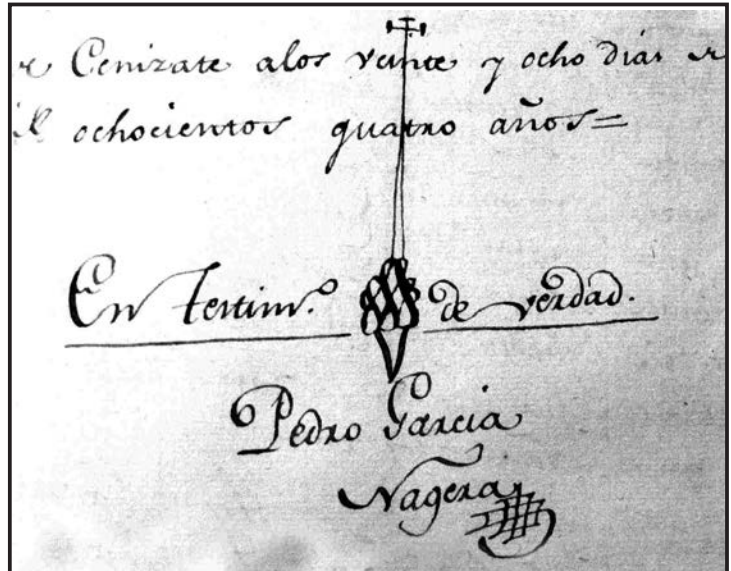 Cenizate alos veinte y ocho dias
ochocientos quatro años=
En testim.º de verdad.
Pedro Garcia
Nagera